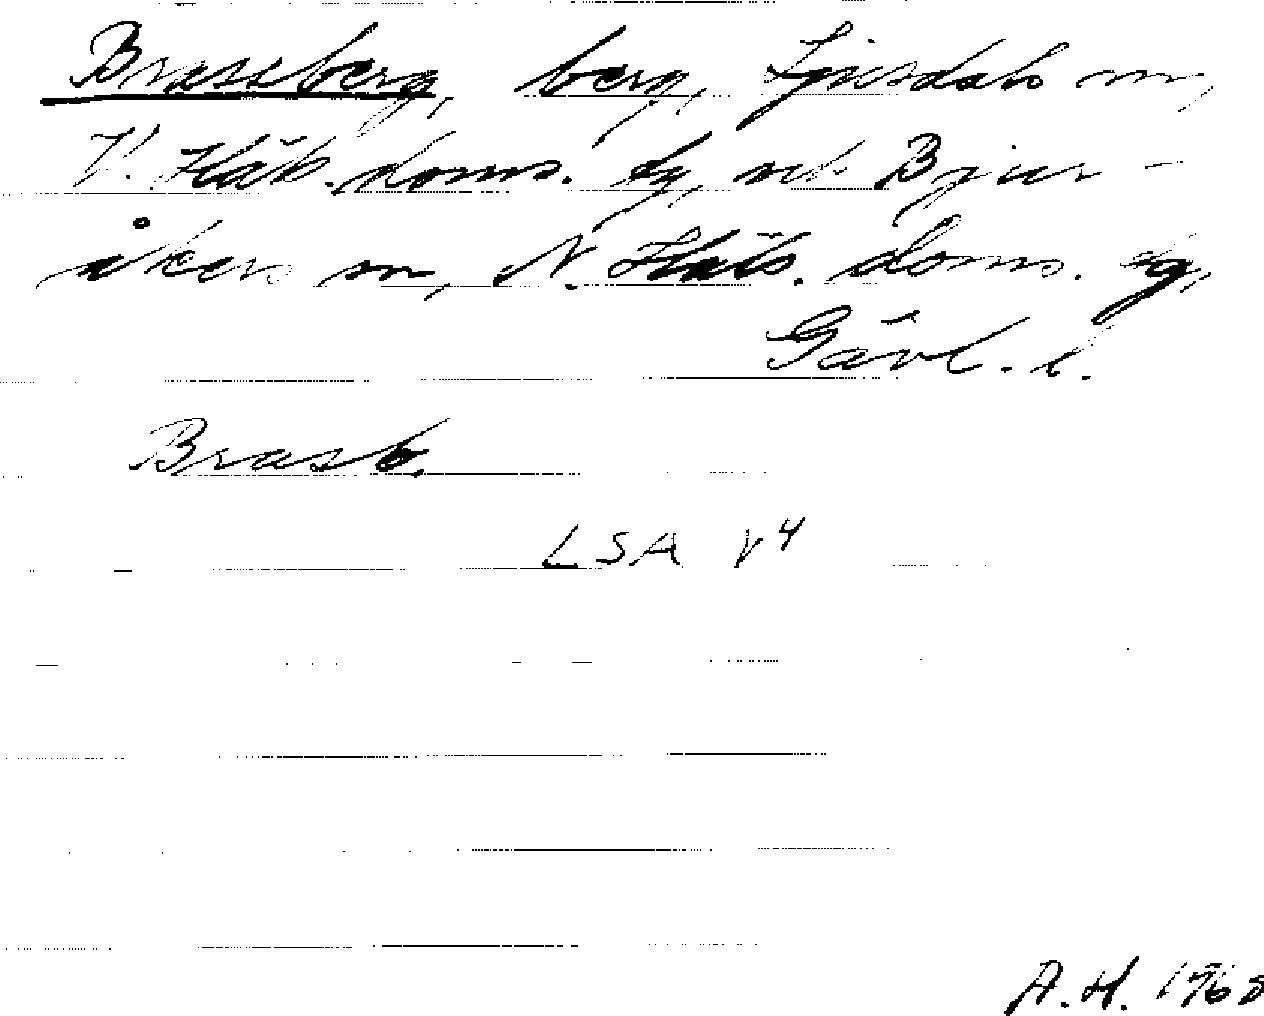 Brassberg, berg, Ljusdals sn,
V. Häls. doms. sg, och Bjur-
åkers sn, N. Häls. doms. sg,
Gävl. l.
Brasb.
LSA V4
A.H. 1968